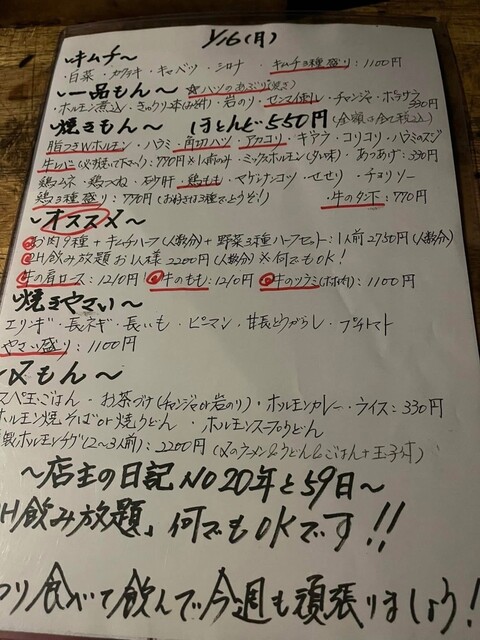 1/16(月)
~キムチ~
・白菜・カクテキ・キャベツ・シロナ・キムチ3種盛り:1100円
~一品もん~ ☆ハツのあぶり(焼き)
・ホルモン煮込・きゅうり1本(み付)・岩のり・センマイ刺し・チャンジャ・ポテサラ 330円
~焼きもん~ ほとんど550円(金額は全て税込)
脂つきWホルモン・ハラミ・角切ハツ・アカコリ・キアラ・コリコリ・ハラミのスジ
牛レバー(必ず焼いて下さい):770円※1人前のみ・ミックスホルモン(タレ味)・あつあげ:330円
鶏ムネ・鶏つくね・砂肝・鶏もも・ヤゲンナンコツ・せせり・チョリソー
鶏3種盛り:770円(お好きな3種でどうぞ!)・牛のタンホ:770円
~オススメ~
お肉9種+キムチハーフ(人数分)+野菜3種ハーフセット:1人前2750円(人数分)
2H飲み放題お1人様2200円(人数分)※何でもOK!
牛の肩ロース:1210円 牛のもも:1210円 牛のツラミ(ホホ肉):1100円
~焼きやさい~
エリンギ・長ネギ・長いも・ピーマン・甘長とうがらし・プチトマト
やさい盛り:1100円
~〆もん~
スペ玉ごはん・お茶づけ(チャンジャor岩のり)・ホルモンカレー・ライス:330円
ホルモン焼そばor焼うどん・ホルモンスープうどん
製ホルモンチゲ(2~3人前):2200円(〆のラーメン&うどん&ごはん+玉子付)
~店主の日記NO20年と59日~
H飲み放題」何でもOKです!!
つり食べて飲んで今週も頑張りましょう!